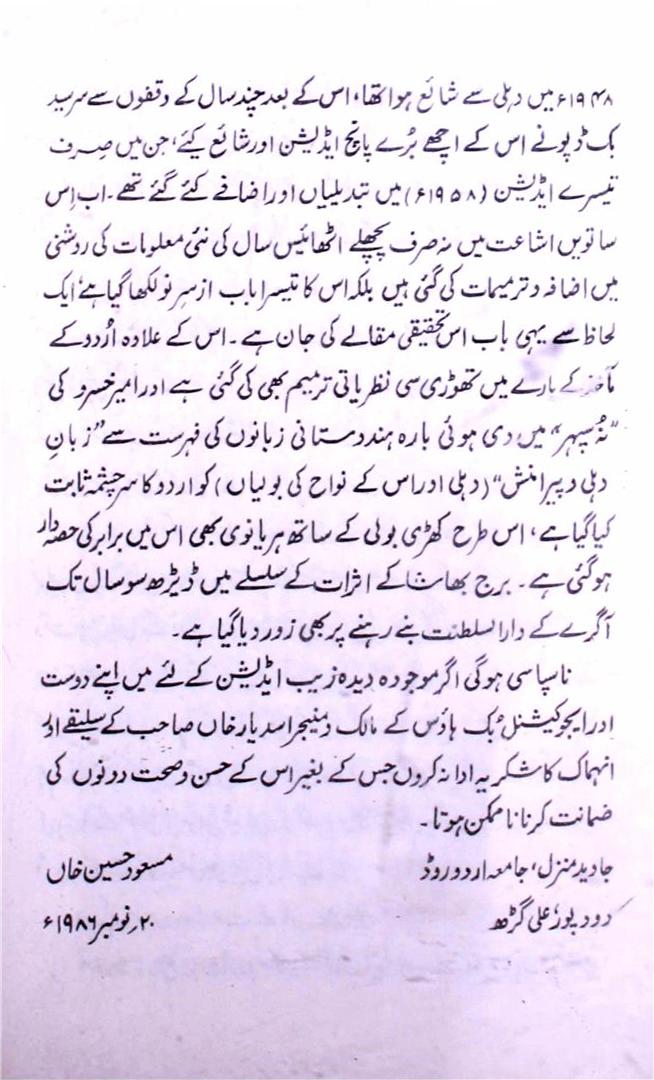 ۱۹۴۸ء میں دہلی سے شائع ہوا تھا، اس کے بعد چند سال کے وقفوں سے سرسید
بک ڈپو نے اس کے اچھے بُرے پانچ ایڈیشن اور شائع کیے، جن میں صِرف
تیسرے ایڈیشن (۱۹۵۸ء) میں تبدیلیاں اور اضافے کئے گئے تھے۔ اب اِس
ساتویں اشاعت میں نہ صرف پچھلے اٹھائیس سال کی نئی معلومات کی روشنی
میں اضافہ و ترمیمات کی گئی ہیں بلکہ اس کا تیسرا باب از سرِ نو لکھا گیا ہے، ایک
لحاظ سے یہی باب اس تحقیقی مقالے کی جان ہے۔ اس کے علاوہ اُردو کے
مآخذ کے بارے میں تھوڑی سی نظریاتی ترمیم بھی کی گئی ہے اور امیر خسرو کی
"نُہ سپہر" میں دی ہوئی بارہ ہندوستانی زبانوں کی فہرست سے "زبانِ
دہلی و پیرامنش" (دہلی اور اس کے نواح کی بولیاں) کو اردو کا سرچشمہ ثابت
کیا گیا ہے، اس طرح کھڑی بولی کے ساتھ ہریانوی بھی اس میں برابر کی حصّہ دار
ہو گئی ہے۔ برج بھاشا کے اثرات کے سلسلے میں ڈیڑھ سو سال تک
آگرے کے دارالسلطنت بنے رہنے پر بھی زور دیا گیا ہے۔
ناسپاسی ہوگی اگر موجودہ دیدہ زیب ایڈیشن کے لئے میں اپنے دوست
اور ایجوکیشنل بُک ہاؤس کے مالک و منیجر اسد یار خاں صاحب کے سلیقے اور
انہماک کا شکریہ ادا نہ کروں جس کے بغیر اس کے حسن و صحت دونوں کی
ضمانت کرنا ناممکن ہوتا۔
جاوید منزل، جامعہ اردو روڈ مسعود حسین خاں
دودپور، علی گڑھ ۲۰؍ نومبر ۱۹۸۶ء